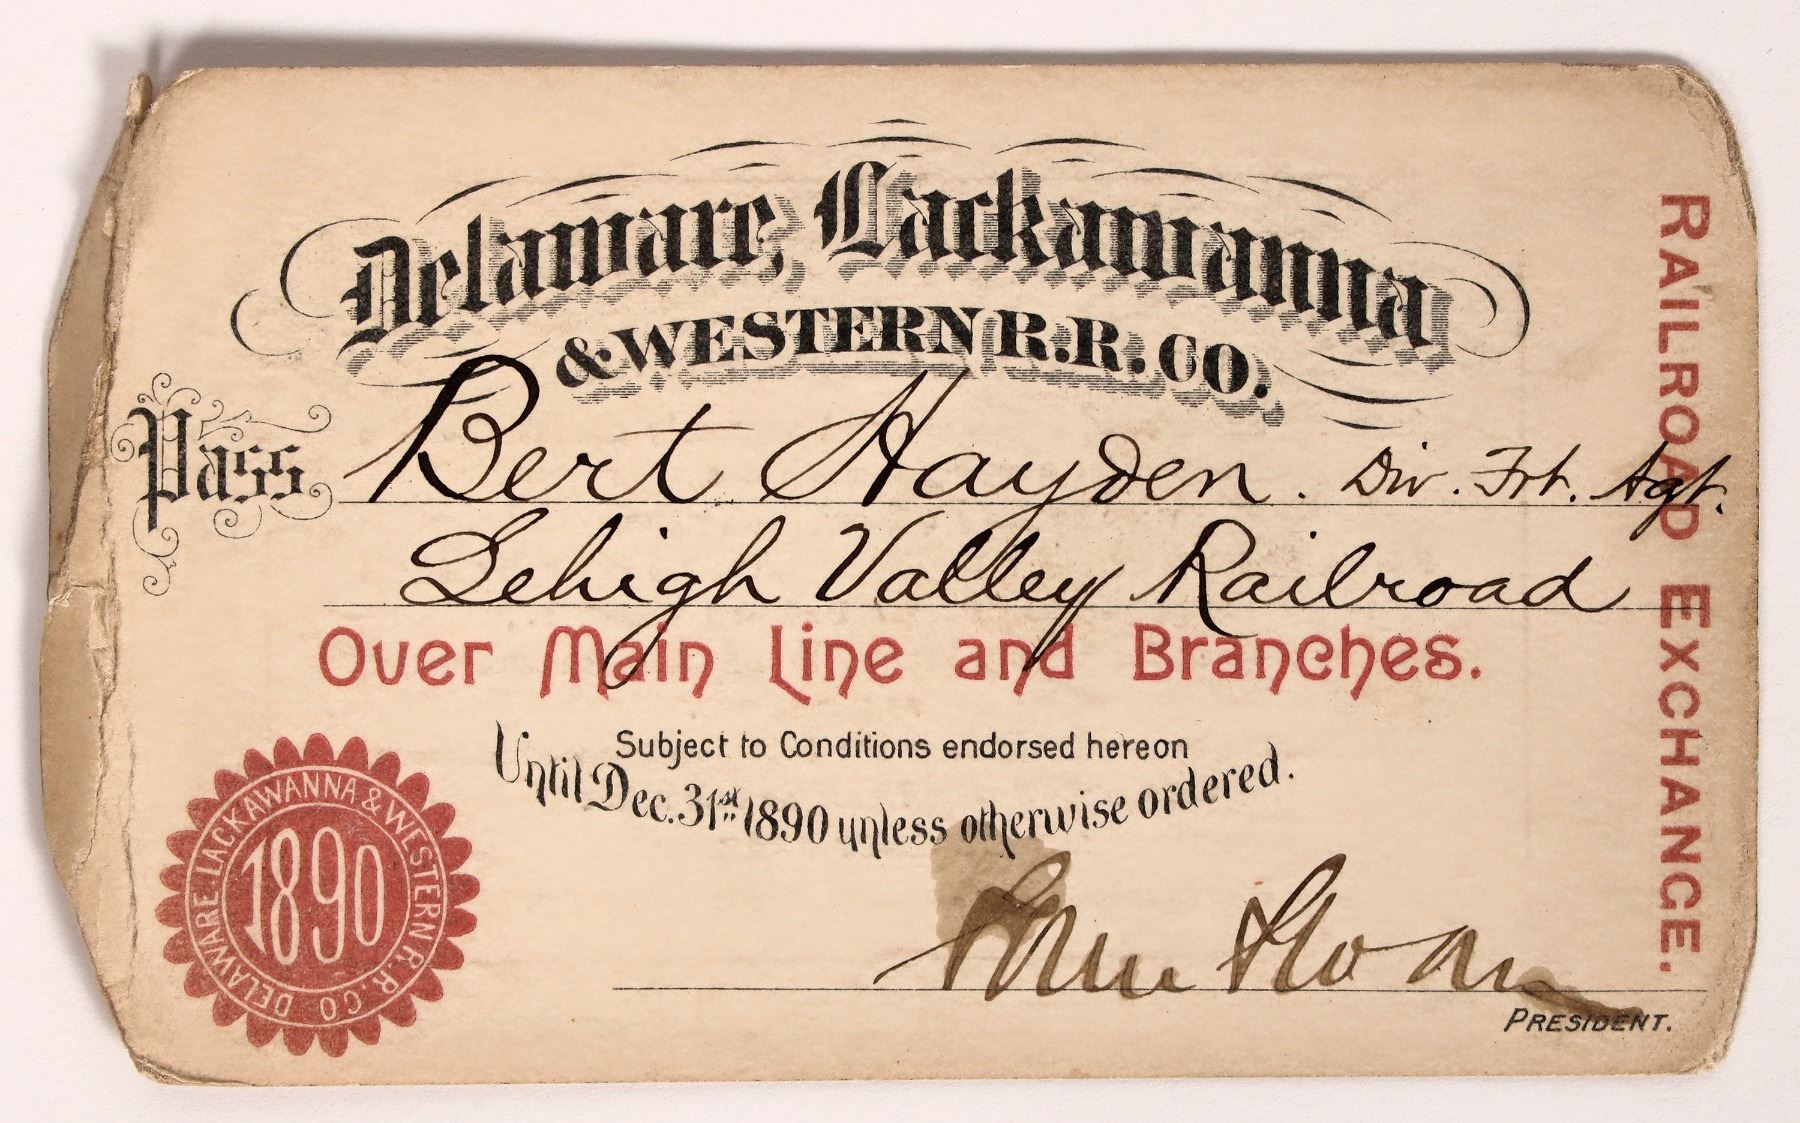 Delaware, Lackawanna
& WESTERN R.R. CO.
Pass Bert Hayden. Div. Frt. Agt.
Lehigh Valley Railroad
Over Main Line and Branches.
Subject to Conditions endorsed hereon
Until Dec. 31st 1890 unless otherwise ordered.
Sam Sloan
PRESIDENT.
DELAWARE LACKAWANNA & WESTERN R.R. CO
1890
RAILROAD EXCHANGE.